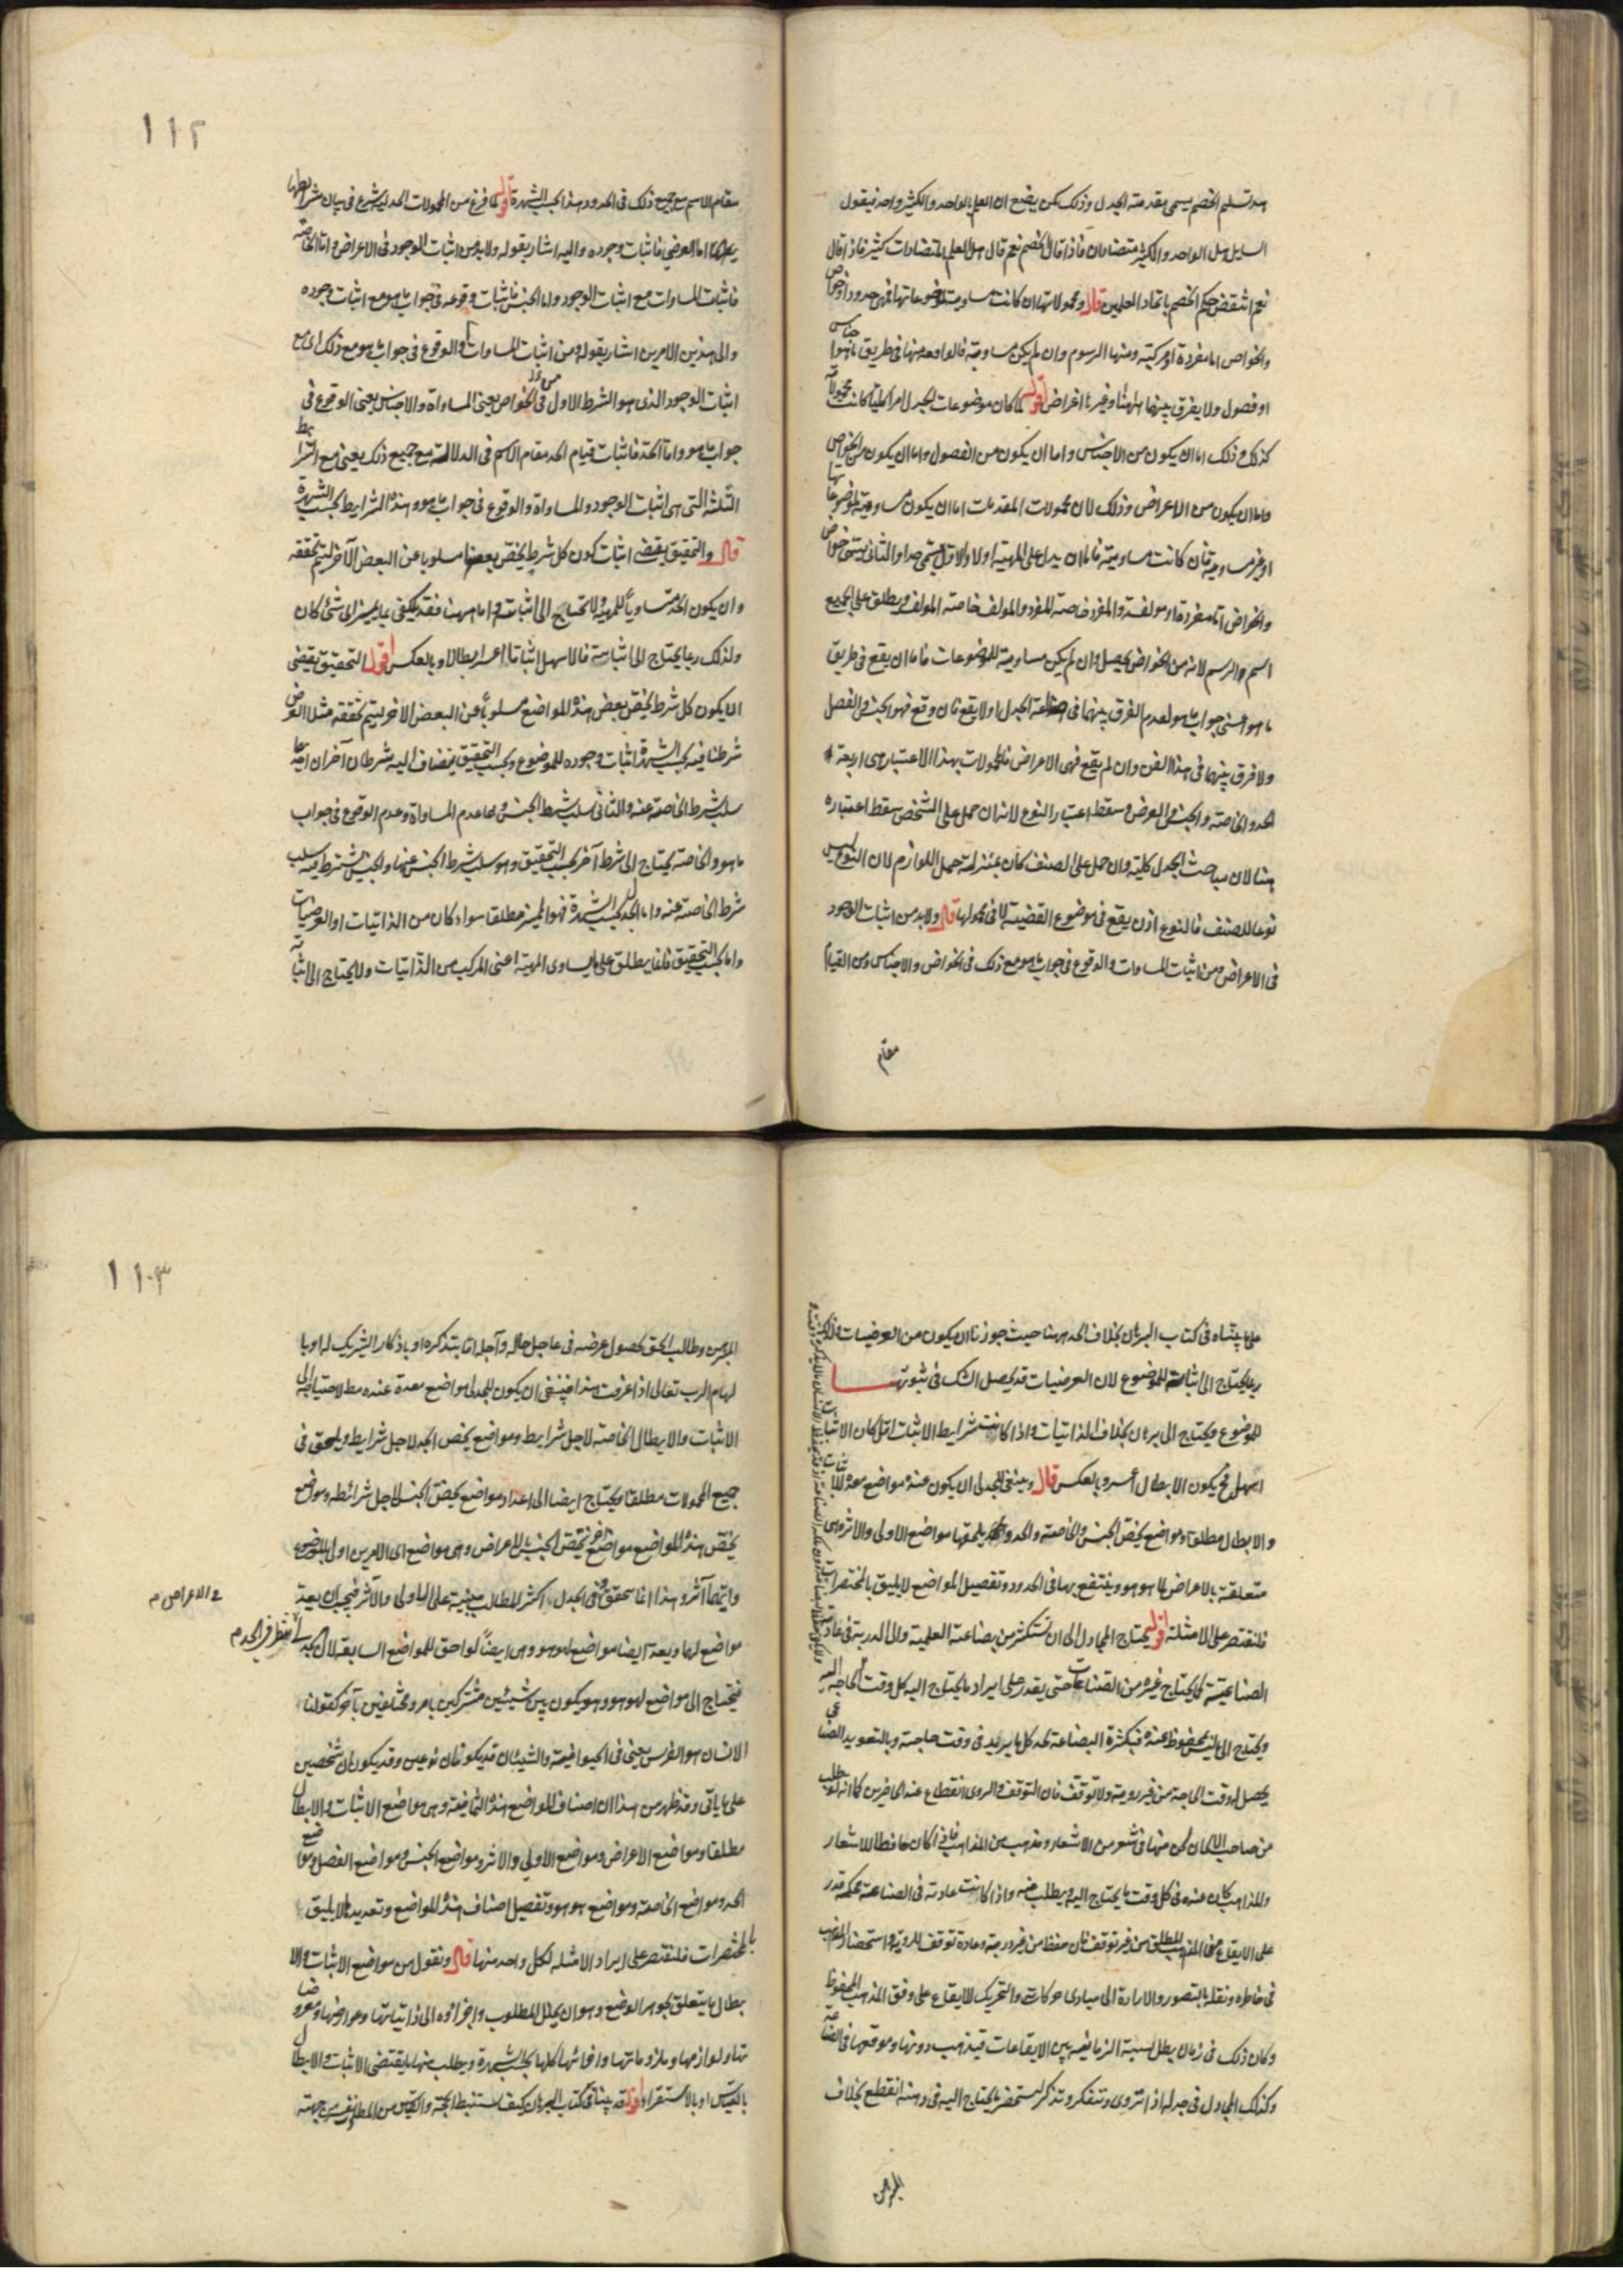 بعد تسليم الخصم يسمى مقدمته الجدل وذلك كمن يضع ان العلم بالواحد والكثير واحد فيقول
السايل هل الواحد والكثير متضادان فاذا قال الخصم نعم قال هل العلم بالمتضادات كثير فاذا قال
نعم انتقض حكم الخصم باتحاد العلمين قال ومحمولاتها ان كانت مساوية لموضوعاتها فهي حدود او خواص
والخواص اما مفردة او مركبة ومنها الرسوم وان لم يكن مساوية فالواقعة منها في طريق ما هو اجناس
او فصول ولا يفرق بينهما ههنا وغيرها اعراض اقول لما كان موضوعات الجدل امرا كليا كانت محمولاته
كذلك وذلك اما ان يكون من الاجناس واما ان يكون من الفصول واما ان يكون من الخواص
واما ان يكون من الاعراض وذلك لان محمولات المقدمات اما ان يكون مساوية لموضوعاتها
او غير مساوية فان كانت مساوية فاما ان يدل على المهية اولا والاول يسمى حدا والثاني يسمى خواص
والخواص اما مفردة او مولفة والمفرد خاصة للمفرد والمولف خاصة المولف ويطلق على الجميع
اسم الرسم لانه من الخواص يحصل وان لم يكن مساوية للموضوعات فاما ان يقع في طريق
ما هو اعنى جواب ما هو لعدم الفرق بينهما في صناعة الجدل اولا يقع فان وقع فهو الجنس والفصل
ولا فرق بينهما في هذا الفن وان لم يقع فهي الاعراض فالمحمولات بهذا الاعتبار هي اربعة
الحد والخاصة والجنس والعرض وسقط اعتبار النوع لانه ان حمل على الشخص سقط اعتباره
هنا لان مباحث الجدل كلية وان حمل على الصنف كان بمنزلة حمل اللوازم لان النوع ليس
نوعا للصنف فالنوع اذن يقع في موضوع القضية لا في محمولها قال ولا بد من اثبات الوجود
في الاعراض ومن اثبات المساوات والوقوع في جواب ما هو مع ذلك في الخواص والاجناس ومن القيام
مقام
١١٢
مقام الاسم مع جميع ذلك في الحدود هذا بحسب الشهرة اقول لما فرغ من المحمولات الجدلية شرع في بيان شرايطها
اما العرض فاثبات وجوده واليه اشار بقوله ولا بد من اثبات الوجود في الاعراض واما الخاصة
فاثبات المساوات مع اثبات الوجود واما الجنس فاثبات وقوعه في جواب ما هو مع اثبات وجوده
والى هذين الامرين اشار بقوله ومن اثبات المساوات والوقوع في جواب ما هو مع ذلك اى مع
اثبات الوجود الذى هو الشرط الاول في الخواص يعنى المساواة والاجناس يعنى الوقوع في
جواب ما هو واما الحد فاثبات قيام الحد مقام الاسم في الدلالة مع جميع ذلك يعنى مع الشرايط
الثلثة التى هى اثبات الوجود والمساواة والوقوع في جواب ما هو وهذه الشرايط بحسب الشهرة
قال والتحقيق يقتضى اثبات كون كل شرط يختص ببعضها مسلوبا عن البعض الآخر ليتم تحققه
وان يكون الحد مساويا للمهية ولا يحتاج الى اثبات واما ههنا فقد يكتفى بما يميز اى شئ كان
ولذلك ربما يحتاج الى اثباته فالاسهل اثباتا اعسر ابطالا وبالعكس اقول التحقيق يقتضى
ان يكون كل شرط يختص ببعض هذه المواضع مسلوبا عن البعض الآخر ليتم تحققه مثلا العرض
شرطنا فيه بحسب الشهرة اثبات وجوده للموضوع وبحسب التحقيق ينضاف اليه شرطان آخران احدهما
سلب شرط الخاصة عنه والثانى سلب شرط الجنس وهما عدم المساواة وعدم الوقوع في جواب
ما هو والخاصة يحتاج الى شرط آخر بحسب التحقيق وهو سلب شرط الجنس عنها والجنس يشترط فيه سلب
شرط الخاصة عنه واما الحد بحسب الشهرة فهو المميز مطلقا سواء كان من الذاتيات او العرضيات
واما بحسب التحقيق فانما يطلق على ما يساوى المهية اعنى المركب من الذاتيات ولا يحتاج الى اثباته
على ما بيناه في كتاب البرهان بخلاف الحد ههنا حيث جوزنا ان يكون من العرضيات ولذلك
ربما يحتاج الى اثباته للموضوع لان العرضيات قد يحصل الشك في ثبوتها
للموضوع ويحتاج الى برهان بخلاف الذاتيات واذا كانت شرايط الاثبات اقل كان الاثبات
اسهل فح يكون الابطال اعسر وبالعكس قال وينبغى للجدلى ان يكون عنده مواضع معدة للاثبات
والابطال مطلقا ومواضع يختص الجنس والخاصة والحد يلحقها مواضع الاولى والاثر وهى
متعلقة بالاعراض وما هو هو وينتفع بها في الحدود وتفصيل المواضع لا يليق بالمختصرات
فلنقتصر على الامثلة اقول يحتاج المجادل الى ان يستكثر من بضاعته العلمية والى الدربة في عادته
الصناعية كما يحتاج غيره من الصناعات حتى يقدر على ايراد ما يحتاج اليه كل وقت الحاجة اليه
ويحتاج الى ما ليس بمحفوظ عنده فبكثرة البضاعة يجد كل ما يريد في وقت حاجته وبالتعويد الصناعى
يحصل له وقت الحاجة من غير روية ولا توقف فان التوقف والروى انقطاع عند الحاضرين كما انه لو طلب
من صاحب الالحان لحن منها في شعر من الاشعار ومذهب من المذاهب فاذا كان حافظا للاشعار
والمذاهب كان عنده في كل وقت ما يحتاج اليه ويطلب منه واذا كانت عادته في الصناعة محكمة قدر
على الايقاع من غير توقف فان حفظ من غير دربة وعادة توقف للروية واستحضار المذهب
في خاطره ونقله بالتصور والارادة الى مبادى حركات والتحريك للايقاع على وفق المذهب المحفوظ
وكان ذلك في زمان يبطل نسبة الزمانية بين الايقاعات فيذهب رونها وموقعها في الصناعة
وكذلك المجادل في جدله اذا تروى وتفكر وتذكر ليستحضر ما يحتاج اليه في ذهنه انقطع بخلاف
المبرهن
١١٣
المبرهن وطالب الحق لحصول غرضه في عاجل حاله وآجله اما بتذكره او باذكار الشريك له او با
لهام الرب تعالى اذا عرفت هذا فينبغى ان يكون للجدلى مواضع معدة عنده لاحتياجه الى
الاثبات والابطال الخاصة لاجل شرايط ومواضع يخص الحد لاجل شرايطه ويلحق في
جميع المحمولات مطلقا ويحتاج ايضا الى اعداد مواضع يخص الجنس لاجل شرائطه ومواضع
يختص هذه المواضع مواضع اخر تختص الجنس بالاعراض وهى مواضع اى الامرين اولى بالموضوع
وايهما آثر وهذا انما يتحقق في الجدل اكثر المطالب مبنية على الاولى والآثر فيجب ان يعد
في الاعراض م
مواضع لها ويعد ايضا مواضع لهو هو وهى ايضا لواحق للمواضع السابقة لان
فيحتاج الى مواضع لهو هو وهو يكون بين شيئين مشتركين بامر ومختلفين بآخر كقولنا
الانسان هو الفرس يعنى في الحيوانية والشيئان قد يكونان نوعين وقد يكونان شخصين
على ما ياتى وقد ظهر من هذا ان اصناف المواضع هذه الثمانية وهى مواضع الاثبات والابطال
مطلقا ومواضع الاعراض ومواضع الاولى والاثر ومواضع الجنس ومواضع الفصل ومواضع
الحد ومواضع الخاصة ومواضع هو هو وتفصيل اصناف هذه المواضع وتعديدها لا يليق
بالمختصرات فلنقتصر على ايراد الامثلة لكل واحد منها قال ونقول من مواضع الاثبات والا
بطال ما يتعلق بجوهر الوضع وهو ان يحلل المطلوب واجزاؤه الى ذاتياتها وعوارضها ومعروضا
تها ولوازمها وملزوماتها وانحائها كلها بحسب الشهرة ويطلب منها ما يقتضى الاثبات والابطال
بالقياس او بالاستقراء اقول قد بينا في كتاب البرهان كيف تستنبط الحجة والقياس من المطلوب نفسه من جهته